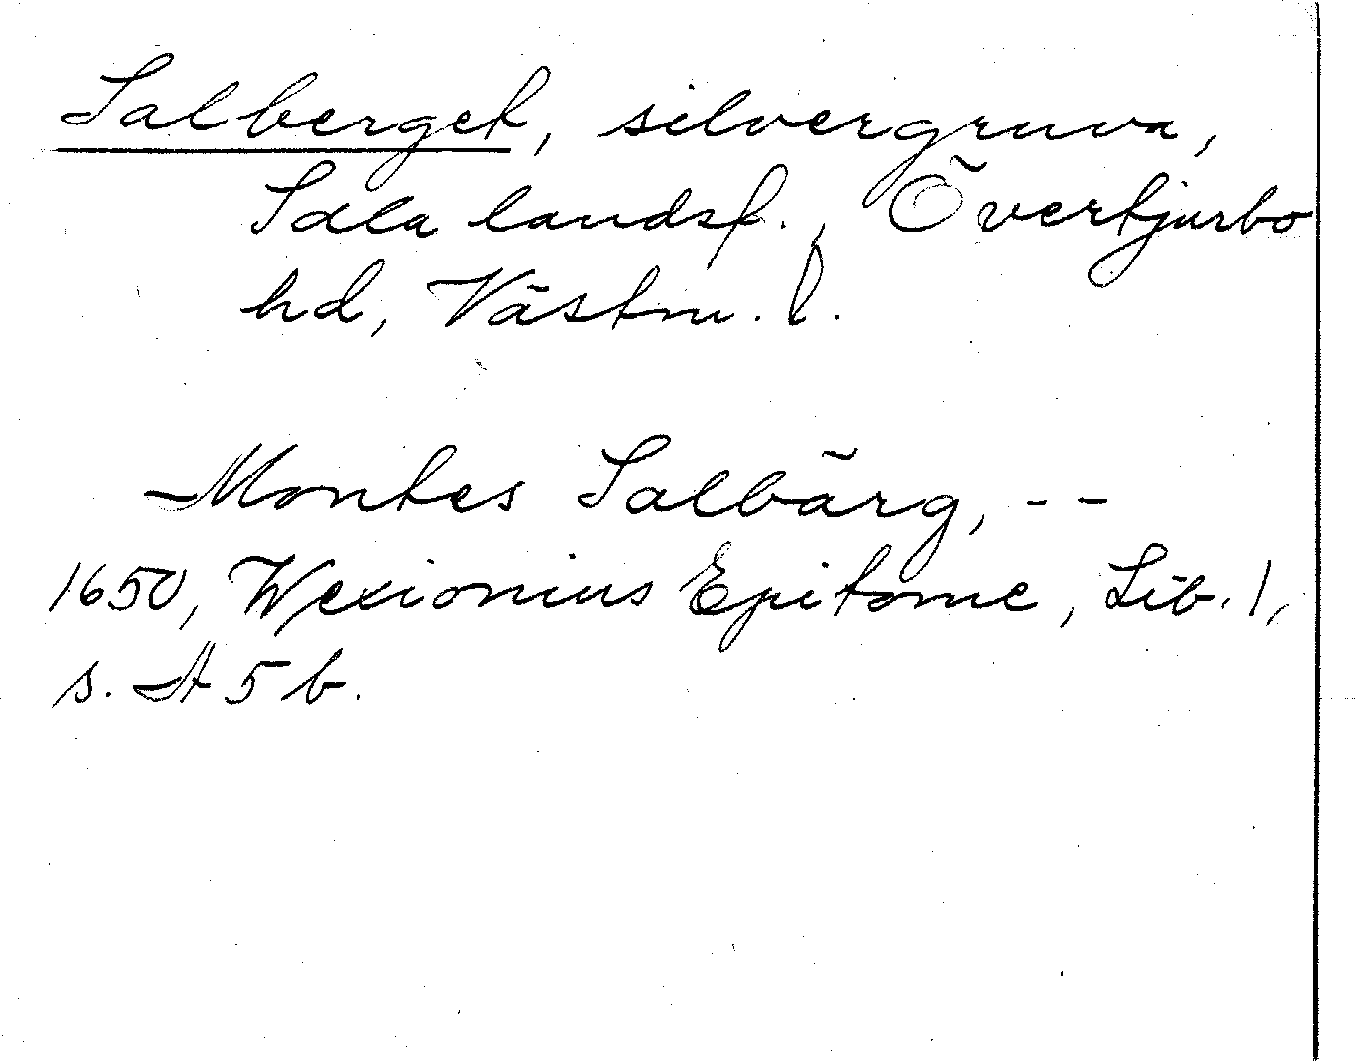 Salberget, silvergruva,
Sala landsf., Övertjurbo
hd, Västm. l.
Montes Salbärg, --
1650, Wexionius Epitome, Lib. 1,
s. A 5 b.